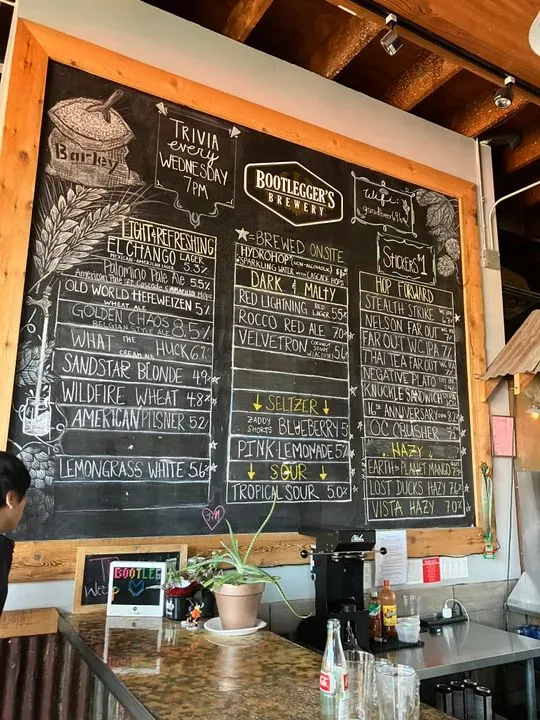 Barley
TRIVIA
every
WEDNESDAY
7PM
BOOTLEGGER'S
BREWERY
STICKERS $1
LIGHT & REFRESHING
EL CHANGO LAGER
MEXICAN AMERICAN LAGER 5.5%
Palomino Pale Ale 5.5%
American Pale
OLD WORLD HEFEWEIZEN 5%
WHEAT ALE
GOLDEN CHAOS 8.5%
BELGIAN STYLE ALE
WHAT THE HUCK 6%
CREAM ALE
SANDSTAR BLONDE 4.9%
WILDFIRE WHEAT 4.8%
AMERICAN PILSNER 5.2
LEMONGRASS WHITE 5.6%
★ = BREWED ONSITE
HYDROHOP (NON-ALCOHOLIC)
SPARKLING WATER with CASCADE HOPS
DARK & MALTY
RED LIGHTNING RED LAGER 5.5%
ROCCO RED ALE 7.0%
VELVETRON
SELTZER
ZADDY SHORTS BLUEBERRY 5
PINK LEMONADE 5%
SOUR
TROPICAL SOUR 5.0%
HOP FORWARD
STEALTH STRIKE
NELSON FAR OUT
FAR OUT WC IPA 7%
THAI TEA FAR OUT
NEGATIVE PLATO
KNUCKLE SANDWICH
16th ANNIVERSARY
OC CRUSHER
HAZY
EARTH PLANET MANGO
LOST DUCKS HAZY 7%
VISTA HAZY 7.0%
BOOTLEG